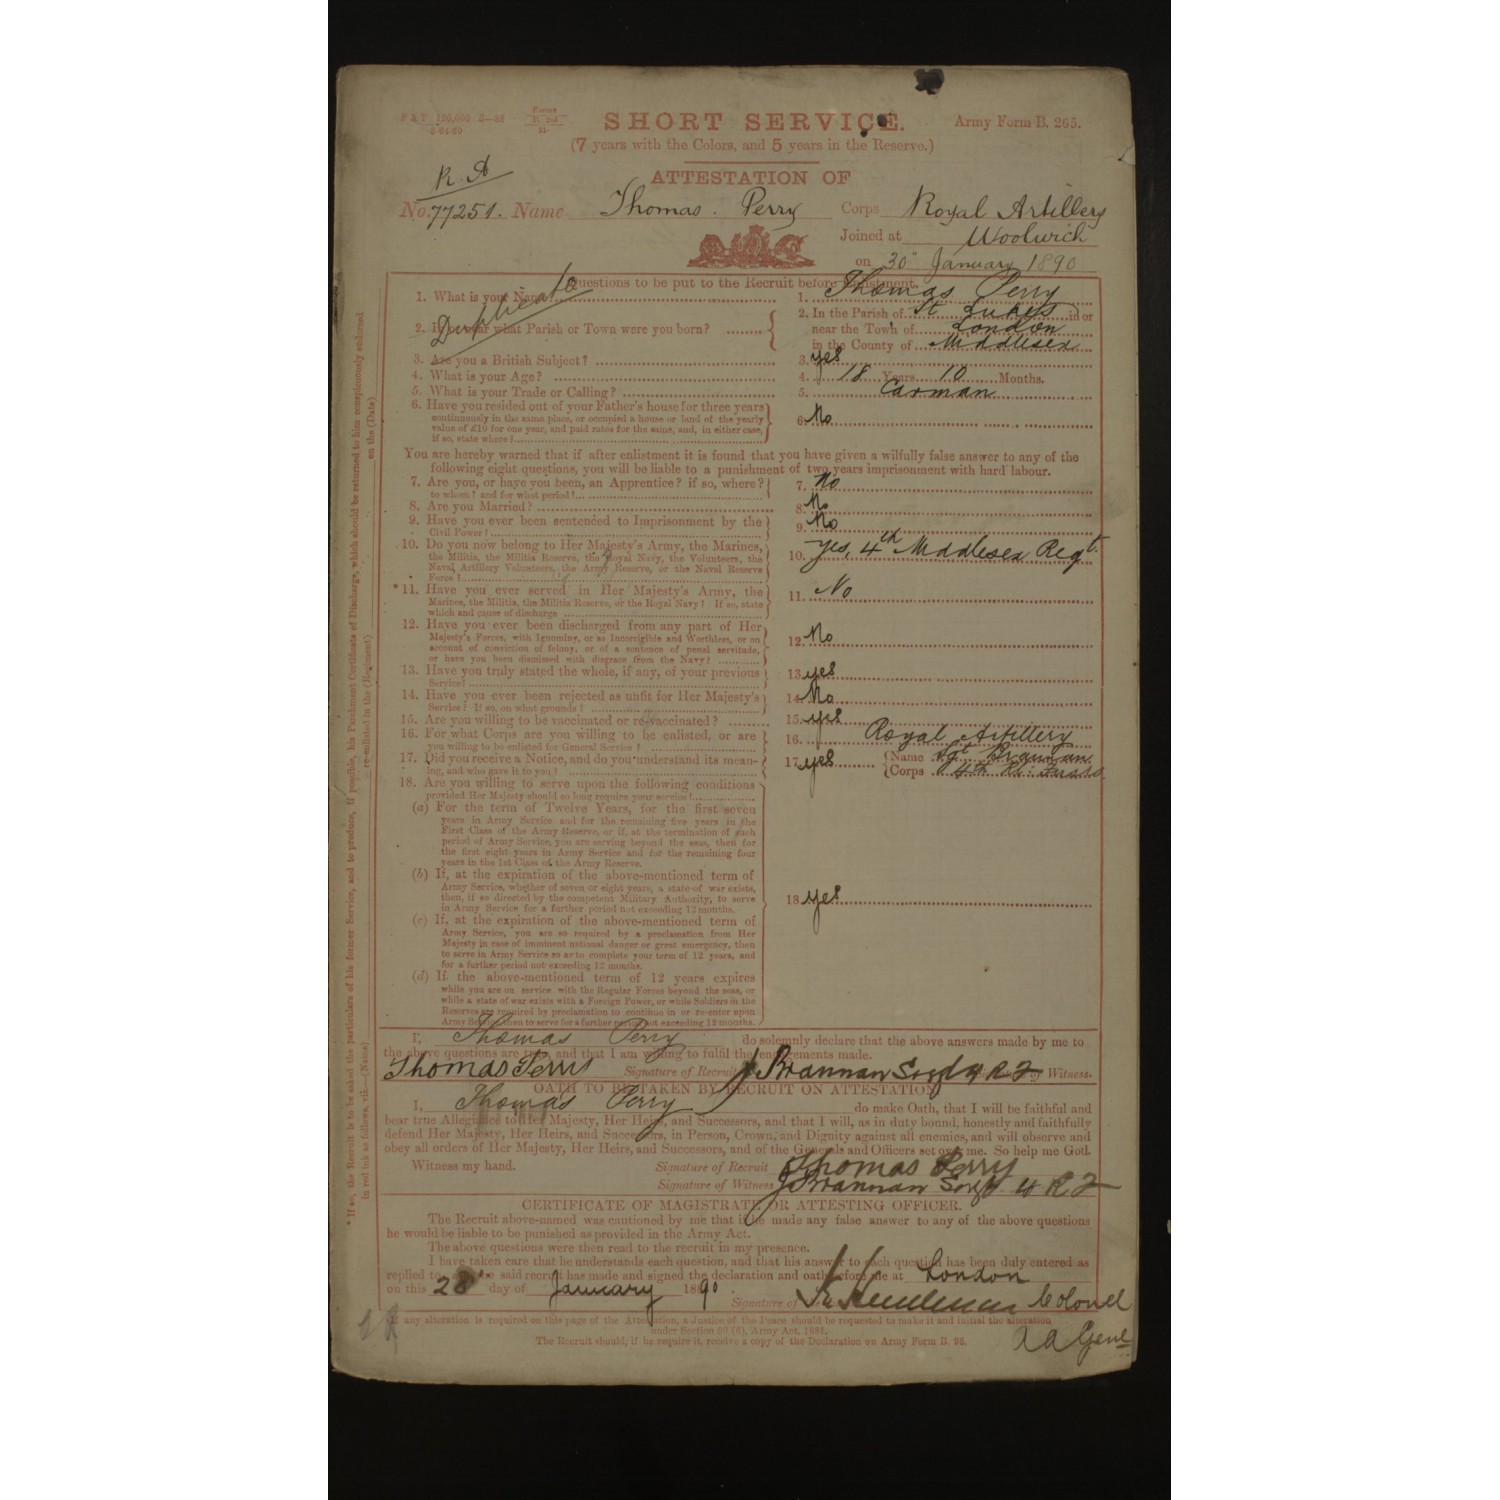 SHORT SERVICE.
Army Form B. 265.
(7 years with the Colors, and 5 years in the Reserve.)
ATTESTATION OF
R.A
No. 77251. Name Thomas. Perry Corps Royal Artillery
Joined at Woolwich
on 30" January 1890
Duplicate
Questions to be put to the Recruit before Enlistment.
1. What is your Name? 1. Thomas Perry
2. In or near what Parish or Town were you born? 2. In the Parish of St Lukes in or
near the Town of London
in the County of Middlesex
3. Are you a British Subject? 3. yes
4. What is your Age? 4. 18 Years 10 Months.
5. What is your Trade or Calling? 5. Carman
6. Have you resided out of your Father's house for three years
continuously in the same place, or occupied a house or land of the yearly
value of £10 for one year, and paid rates for the same, and, in either case,
if so, state where? 6. No
You are hereby warned that if after enlistment it is found that you have given a wilfully false answer to any of the
following eight questions, you will be liable to a punishment of two years imprisonment with hard labour.
7. Are you, or have you been, an Apprentice? if so, where?
to whom? and for what period? 7. No
8. Are you Married? 8. No
9. Have you ever been sentenced to Imprisonment by the
Civil Power? 9. No
10. Do you now belong to Her Majesty's Army, the Marines,
the Militia, the Militia Reserve, the Royal Navy, the Volunteers, the
Naval Artillery Volunteers, the Army Reserve, or the Naval Reserve
Force? 10. yes, 4th Middlesex Regt.
*11. Have you ever served in Her Majesty's Army, the
Marines, the Militia, the Militia Reserve, or the Royal Navy? If so, state
which and cause of discharge 11. No
12. Have you ever been discharged from any part of Her
Majesty's Forces, with Ignominy, or as Incorrigible and Worthless, or on
account of conviction of felony, or of a sentence of penal servitude,
or have you been dismissed with disgrace from the Navy? 12. No
13. Have you truly stated the whole, if any, of your previous
Service? 13. yes
14. Have you ever been rejected as unfit for Her Majesty's
Service? If so, on what grounds? 14. No
15. Are you willing to be vaccinated or re-vaccinated? 15. yes
16. For what Corps are you willing to be enlisted, or are
you willing to be enlisted for General Service? 16. Royal Artillery
17. Did you receive a Notice, and do you understand its mean-
ing, and who gave it to you? 17. yes Name Sgt Brannan
Corps 4th Rl. Fusrs
18. Are you willing to serve upon the following conditions
provided Her Majesty should so long require your service?
(a) For the term of Twelve Years, for the first seven
years in Army Service and for the remaining five years in the
First Class of the Army Reserve, or if, at the termination of such
period of Army Service, you are serving beyond the seas, then for
the first eight years in Army Service and for the remaining four
years in the 1st Class of the Army Reserve.
(b) If, at the expiration of the above-mentioned term of
Army Service, whether of seven or eight years, a state of war exists,
then, if so directed by the competent Military Authority, to serve
in Army Service for a further period not exceeding 12 months.
18 yes
(c) If, at the expiration of the above-mentioned term of
Army Service, you are so required by a proclamation from Her
Majesty in case of imminent national danger or great emergency, then
to serve in Army Service so as to complete your term of 12 years, and
for a further period not exceeding 12 months.
(d) If the above-mentioned term of 12 years expires
while you are on service with the Regular Forces beyond the seas, or
while a state of war exists with a Foreign Power, or while Soldiers in the
Reserves are required by proclamation to continue in or re-enter upon
Army Service then to serve for a further period not exceeding 12 months.
I, Thomas Perry do solemnly declare that the above answers made by me to
the above questions are true, and that I am willing to fulfil the engagements made.
Thomas Perry Signature of Recruit J Brannan Sergt 4 R F of Witness.
OATH TO BE TAKEN BY RECRUIT ON ATTESTATION
I, Thomas Perry do make Oath, that I will be faithful and
bear true Allegiance to Her Majesty, Her Heirs, and Successors, and that I will, as in duty bound, honestly and faithfully
defend Her Majesty, Her Heirs, and Successors, in Person, Crown, and Dignity against all enemies, and will observe and
obey all orders of Her Majesty, Her Heirs, and Successors, and of the Generals and Officers set over me. So help me God.
Witness my hand. Signature of Recruit Thomas Perry
Signature of Witness J Brannan Sergt 4 R F
CERTIFICATE OF MAGISTRATE OR ATTESTING OFFICER.
The Recruit above-named was cautioned by me that if he made any false answer to any of the above questions
he would be liable to be punished as provided in the Army Act.
The above questions were then read to the recruit in my presence.
I have taken care that he understands each question, and that his answer to each question has been duly entered as
replied to, said recruit has made and signed the declaration and oath before me at London
on this 28" day of January 1890.
Signature of Colonel
If any alteration is required on this page of the Attestation, a Justice of the Peace should be requested to make it and initial the alteration
under Section 80 (6), Army Act, 1881.
The Recruit should, if he require it, receive a copy of the Declaration on Army Form B. 98.
* If so, the Recruit is to be asked the particulars of his former Service, and to produce, if possible, his Parchment Certificate of Discharge, which should be returned to him conspicuously endorsed
in red ink as follows, viz.—(Name) re-enlisted in the (Regiment) on the (Date)